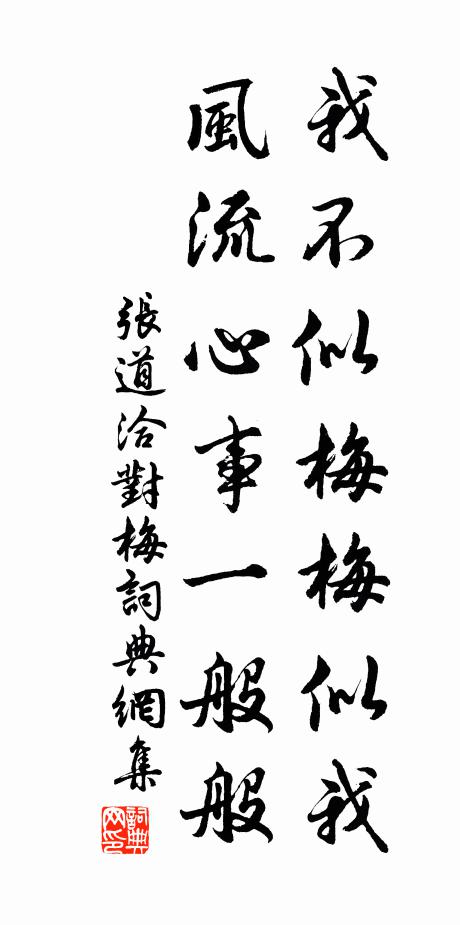 我不似梅梅似我
風流心事一般般
張道洽對梅詞典網集
詞典
网印